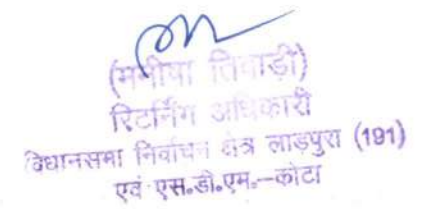 (मनीषा तिवाड़ी)
रिटर्निंग अधिकारी
विधानसभा निर्वाचन क्षेत्र लाडपुरा (191)
एवं एस.डी.एम.-कोटा